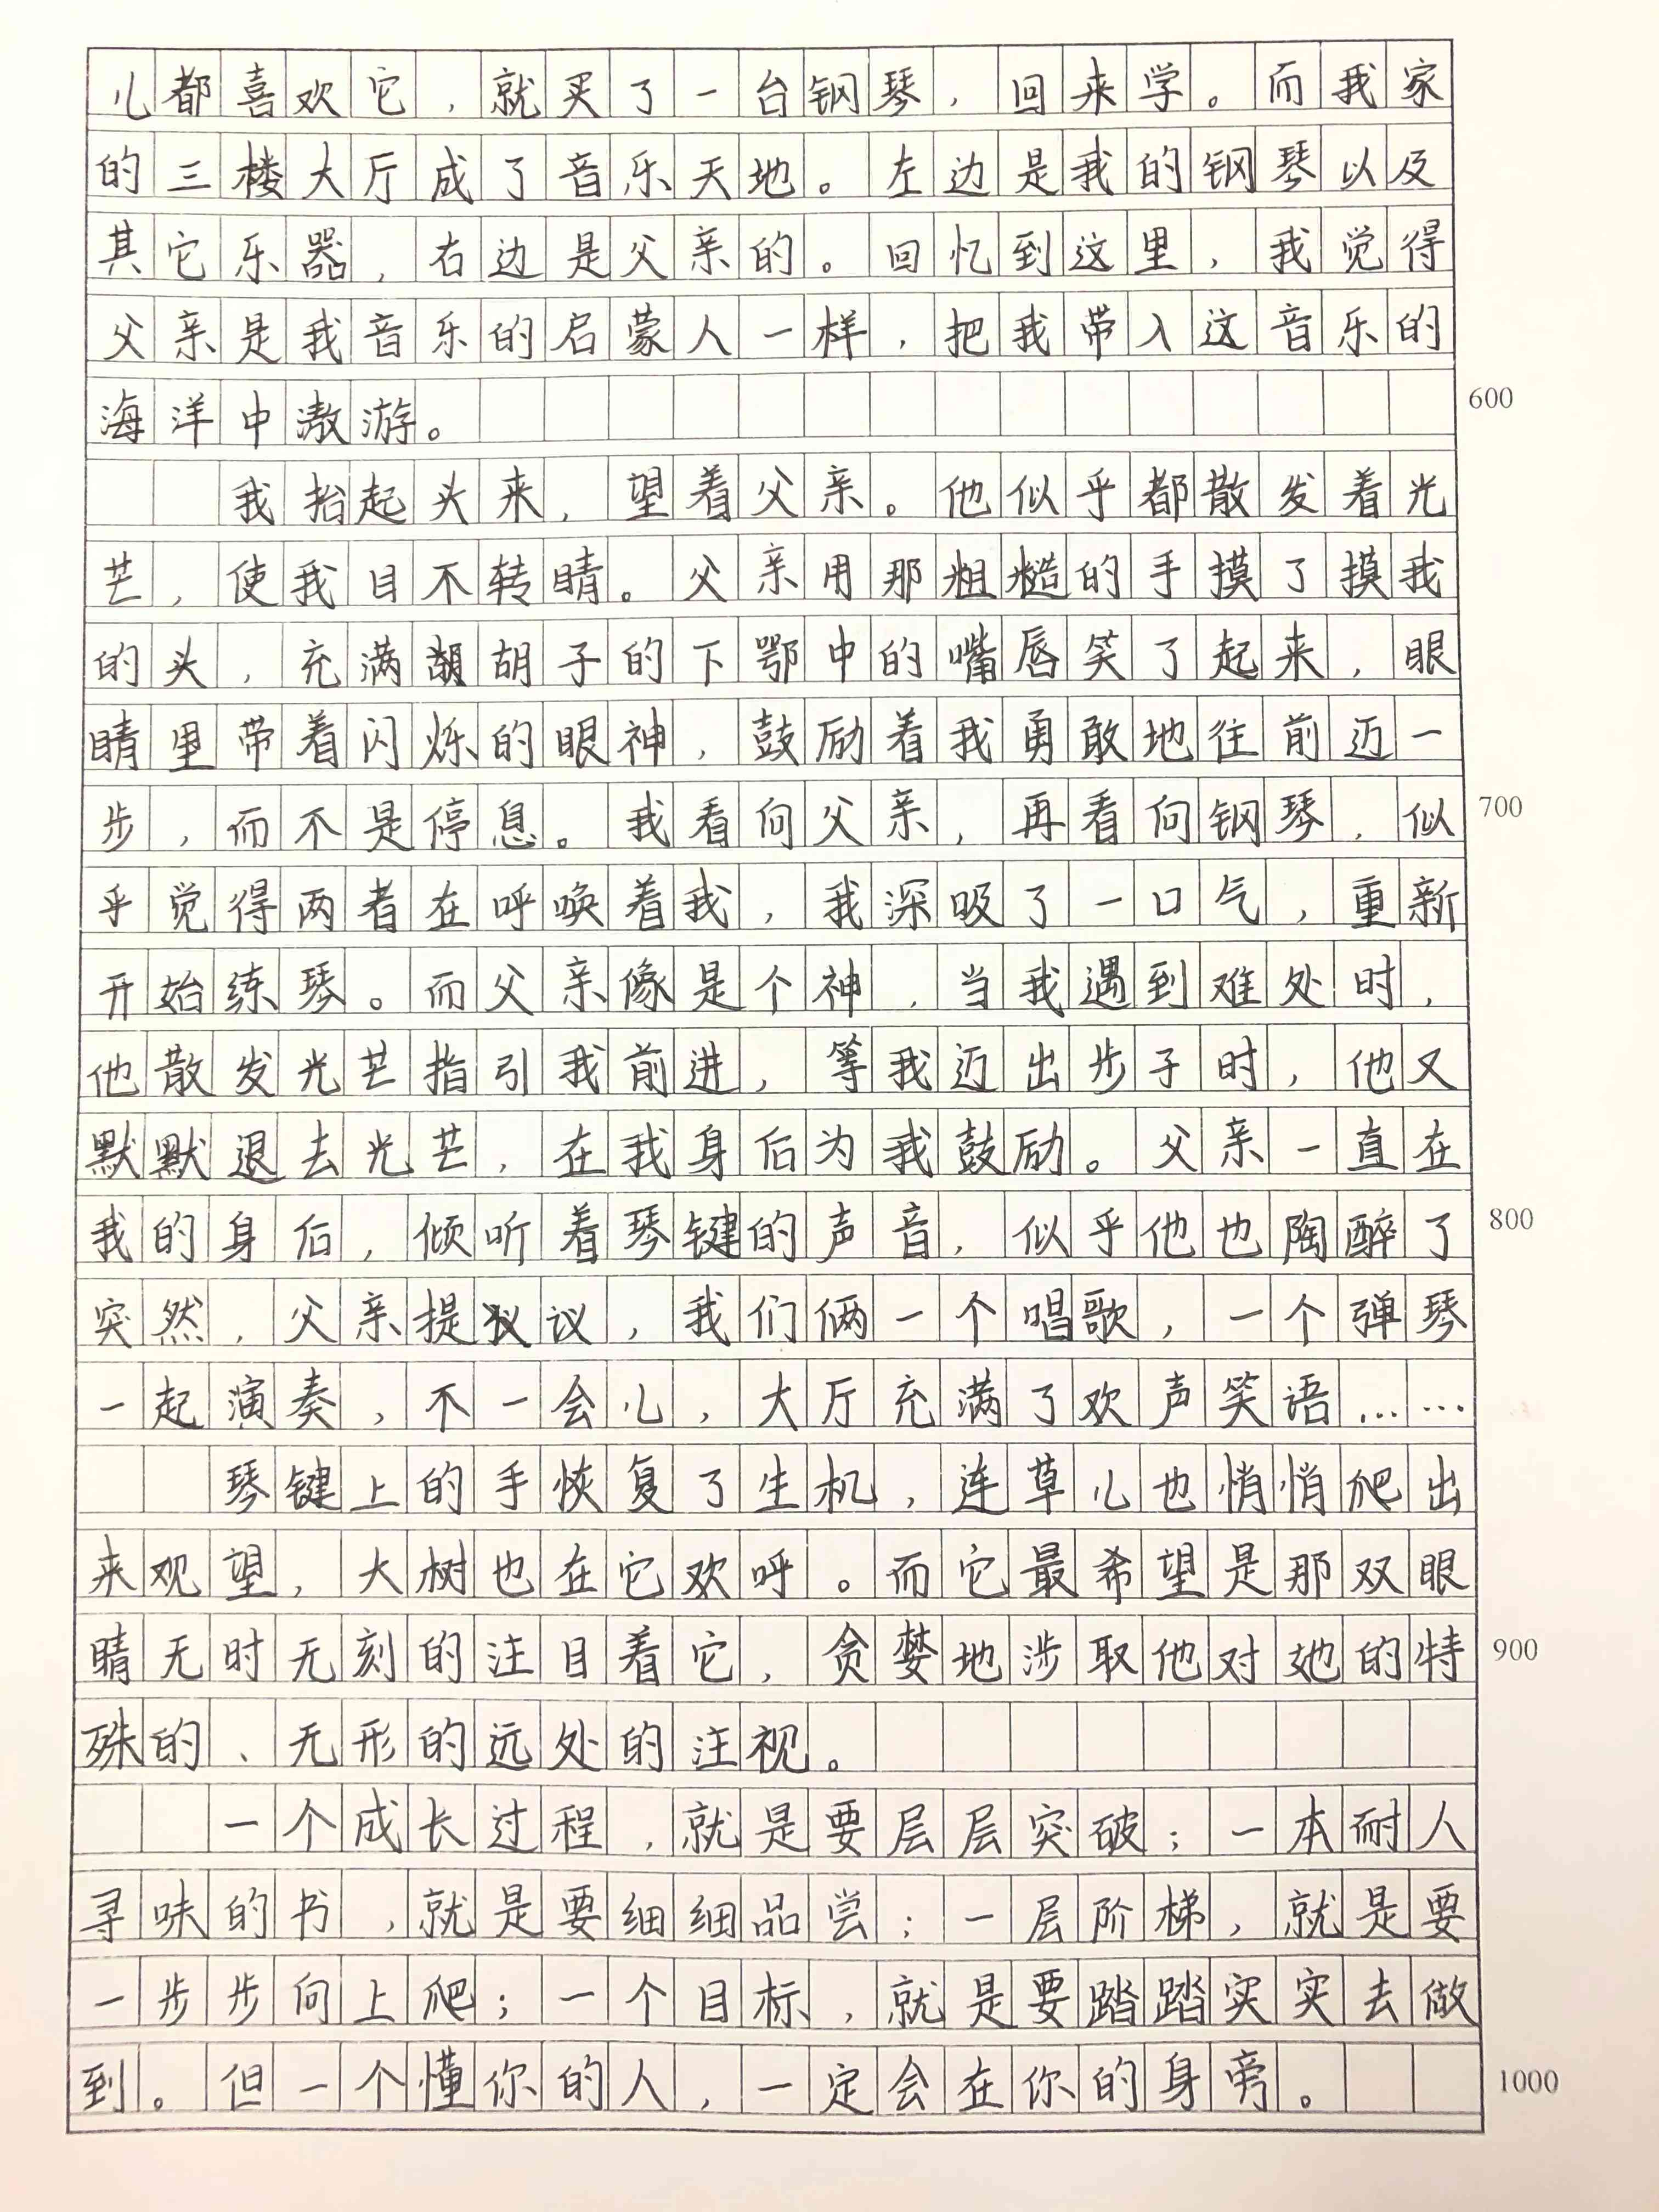 儿都喜欢它，就买了一台钢琴，回来学。而我家
的三楼大厅成了音乐天地。左边是我的钢琴以及
其它乐器，右边是父亲的。回忆到这里，我觉得
父亲是我音乐的启蒙人一样，把我带入这音乐的
海洋中遨游。
600
我抬起头来，望着父亲。他似乎都散发着光
芒，使我目不转睛。父亲用那粗糙的手摸了摸我
的头，充满胡子的下鄂中的嘴唇笑了起来，眼
睛里带着闪烁的眼神，鼓励着我勇敢地往前迈一
步，而不是停息。我看向父亲，再看向钢琴，似
700
乎觉得两者在呼唤着我，我深吸了一口气，重新
开始练琴。而父亲像是个神，当我遇到难处时，
他散发光芒指引我前进，等我迈出步子时，他又
默默退去光芒，在我身后为我鼓励。父亲一直在
我的身后，倾听着琴键的声音，似乎他也陶醉了
800
突然，父亲提议，我们俩一个唱歌，一个弹琴
一起演奏，不一会儿，大厅充满了欢声笑语……
琴键上的手恢复了生机，连草儿也悄悄爬出
来观望，大树也在它欢呼。而它最希望是那双眼
睛无时无刻的注目着它，贪婪地涉取他对她的特
900
殊的、无形的远处的注视。
一个成长过程，就是要层层突破；一本耐人
寻味的书，就是要细细品尝；一层阶梯，就是要
一步步向上爬；一个目标，就是要踏踏实实去做
到。但一个懂你的人，一定会在你的身旁。
1000